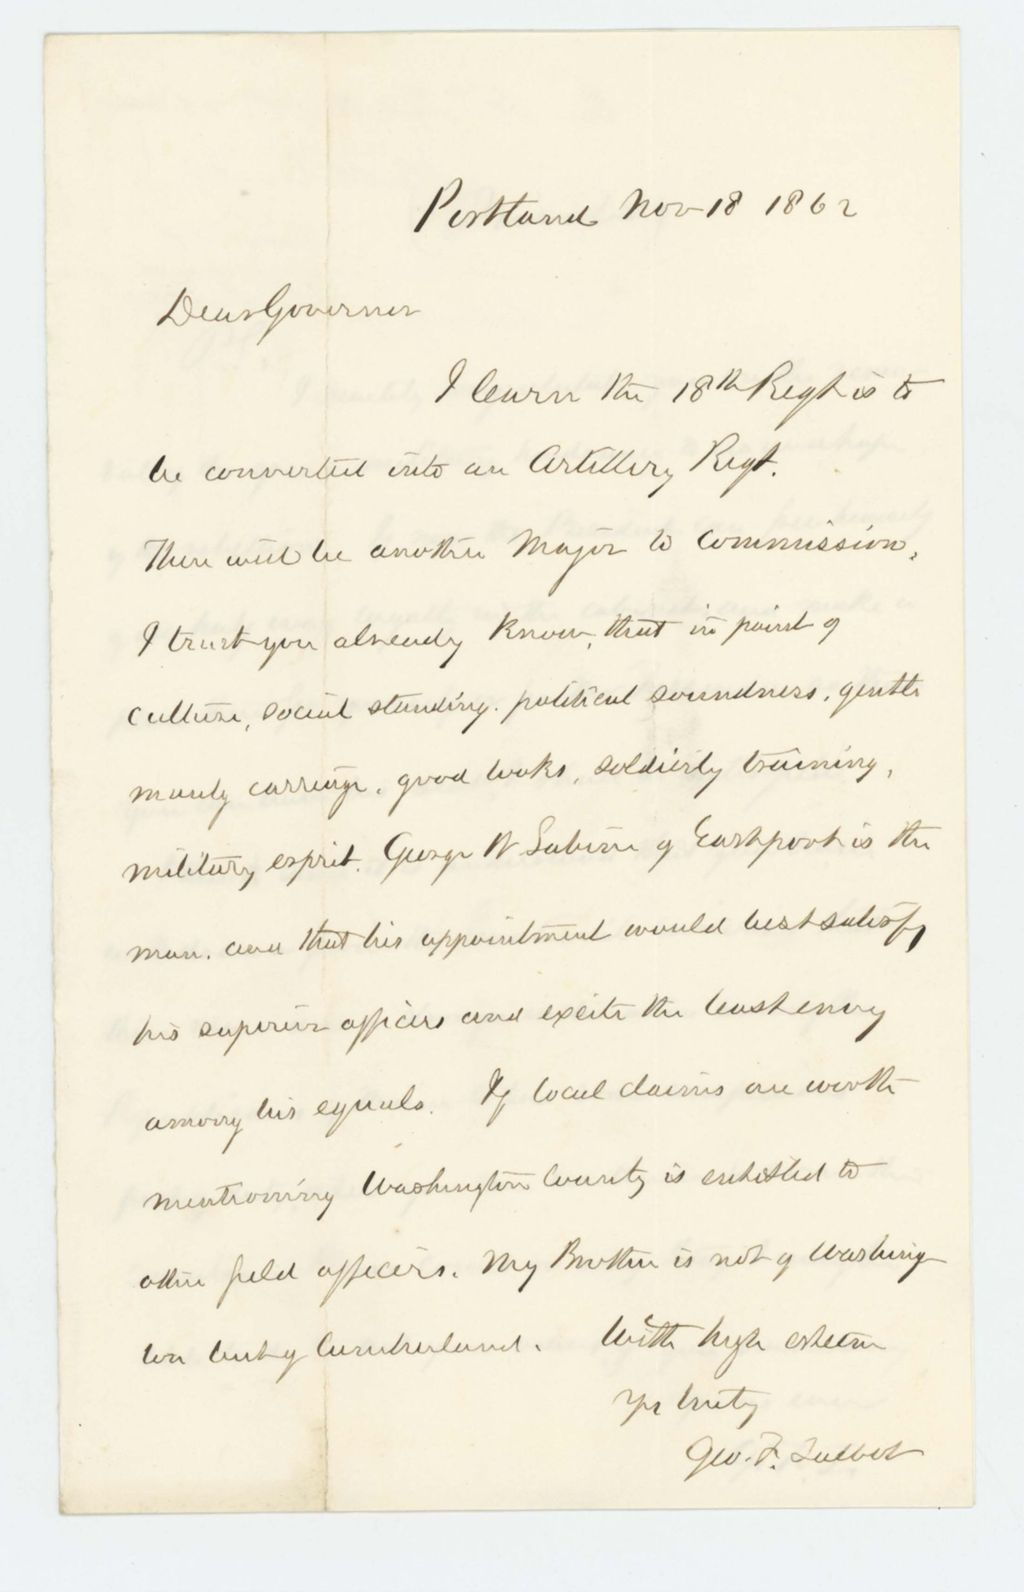 Portland Nov 18 1862
Dear Governor
I learn the 18th Regt is to
be converted into an Artillery Regt.
There will be another Major to commission.
I trust you already know, that in point of
culture, social standing, political soundness, gentle
manly carriage, good looks, soldierly training,
military esprit, George W Sabine of Eastport is the
man, and that his appointment would best satisfy
his superior officers and excite the least envy
among his equals. If local claims are worth
mentioning Washington County is entitled to
other field officers. My Brother is not of Washing
ton but of Cumberland. With high esteem
Yrs truly
Geo. F. Talbot